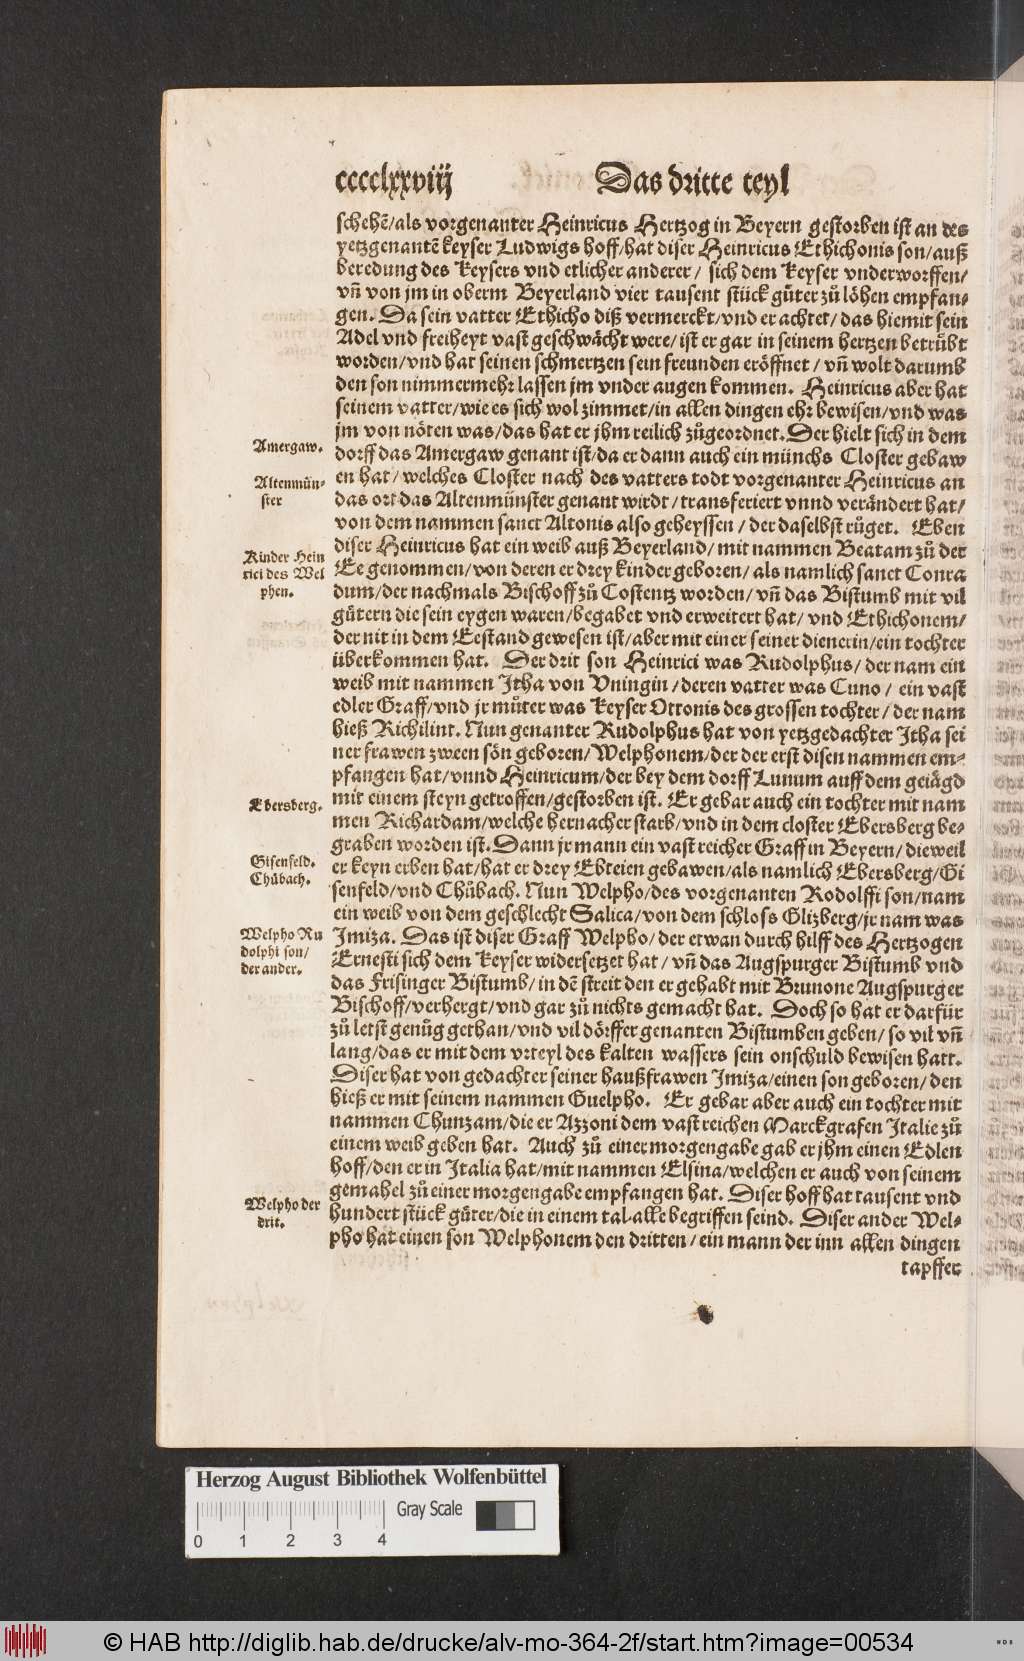 cccclxxviij Das dritte teyl
schehẽ/als vorgenanter Heinricus Hertzog in Beyern gestorben ist an des
yetzgenantẽ keyser Ludwigs hoff/hat diser Heinricus Ethichonis son/auß
beredung des Keysers vnd etlicher anderer/ sich dem Keyser vnderworffen/
vñ von jm in oberm Beyerland vier tausent stück gůter zů löhen empfan-
gen. Da sein vatter Ethicho diß vermerckt/vnd er achtet/das hiemit sein
Adel vnd freiheyt vast geschwächt were/ist er gar in seinem hertzen betrůbt
worden/vnd hat seinen schmertzen sein freunden eröffnet/vñ wolt darumb
den son nimmermehr lassen jm vnder augen kommen. Heinricus aber hat
seinem vatter/wie es sich wol zimmet/in allen dingen ehr bewisen/vnd was
jm von nöten was/das hat er jhm reilich zůgeordnet. Der hielt sich in dem
Amergaw.
dorff das Amergaw genant ist/da er dann auch ein münchs Closter gebaw
Altenmün-
ster
en hat/welches Closter nach des vatters todt vorgenanter Heinricus an
das ort das Altenmünster genant wirdt/transferiert vnnd verändert hat/
von dem nammen sanct Altonis also geheyssen/der daselbst růget. Eben
Kinder Hein
rici des Wel
phen.
diser Heinricus hat ein weib auß Beyerland/mit nammen Beatam zů der
Ee genommen/von deren er drey kinder geboren/als namlich sanct Conra
dum/der nachmals Bischoff zů Costentz worden/vñ das Bistumb mit vil
gůtern die sein eygen waren/begabet vnd erweitert hat/vnd Ethichonem/
der nit in dem Eestand gewesen ist/aber mit einer seiner dienerin/ein tochter
überkommen hat. Der drit son Heinrici was Rudolphus/der nam ein
weib mit nammen Itha von Vningin/deren vatter was Cuno/ein vast
edler Graff/vnd jr můter was Keyser Ottonis des grossen tochter/der nam
hieß Richilint. Nun genanter Rudolphus hat von yetzgedachter Itha sei
ner frawen zween sön geboren/Welphonem/der der erst disen nammen em-
pfangen hat/vnnd Heinricum/der bey dem dorff Lunum auff dem geiägd
Ebersberg.
mit einem steyn getroffen/gestorben ist. Er gebar auch ein tochter mit nam
men Richardam/welche hernacher starb/vnd in dem closter Ebersberg be-
graben worden ist. Dann jr mann ein vast reicher Graff in Beyern/dieweil
Gisenfeld.
Chůbach.
er keyn erben hat/hat er drey Ebteien gebawen/als namlich Ebersberg/Gi
senfeld/vnd Chůbach. Nun Welpho/des vorgenanten Rodolffi son/nam
ein weib von dem geschlecht Salica/von dem schloß Glizberg/jr nam was
Welpho Ru
dolphi son/
der ander.
Imiza. Das ist diser Graff Welpho/der etwan durch hilff des Hertzogen
Ernesti sich dem Keyser widersetzet hat/vñ das Augspurger Bistumb vnd
das Frisinger Bistumb/in dẽ streit den er gehabt mit Brunone Augspurger
Bischoff/verhergt/vnd gar zů nichts gemacht hat. Doch so hat er darfür
zů letst genůg gethan/vnd vil dörffer genanten Bistumben geben/so vil vñ
lang/das er mit dem vrteyl des kalten wassers sein onschuld bewisen hatt.
Diser hat von gedachter seiner haußfrawen Imiza/einen son geboren/den
hieß er mit seinem nammen Guelpho. Er gebar aber auch ein tochter mit
nammen Chunzam/die er Azzoni dem vast reichen Marckgrafen Italie zů
einem weib geben hat. Auch zů einer morgengabe gab er jhm einen Edlen
hoff/den er in Italia hat/mit nammen Elsina/welchen er auch von seinem
gemahel zů einer morgengabe empfangen hat. Diser hoff hat tausent vnd
Welpho der
drit.
hundert stück gůter/die in einem tal alle begriffen seind. Diser ander Wel-
pho hat einen son Welphonem den dritten/ein mann der inn allen dingen
tapffer
Herzog August Bibliothek Wolfenbüttel
Gray Scale
0 1 2 3 4
© HAB http://diglib.hab.de/drucke/alv-mo-364-2f/start.htm?image=00534